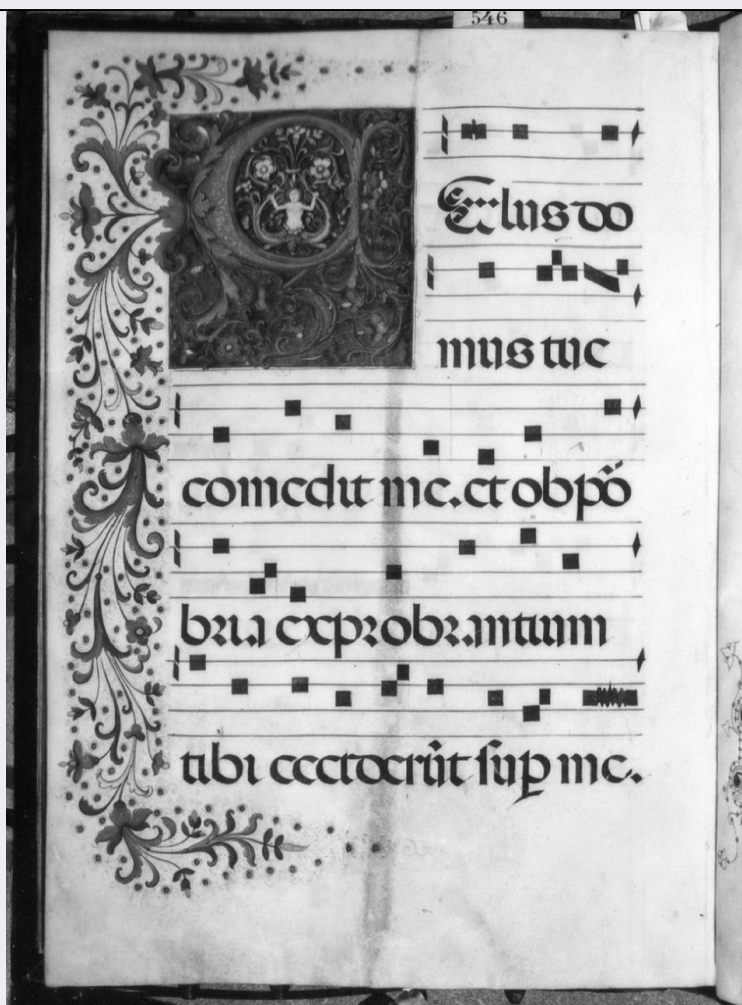 546
ZElus do
mus tue
comedit me. et obpō
bria exprobrantium
tibi ceciderūt ſuꝑ me.